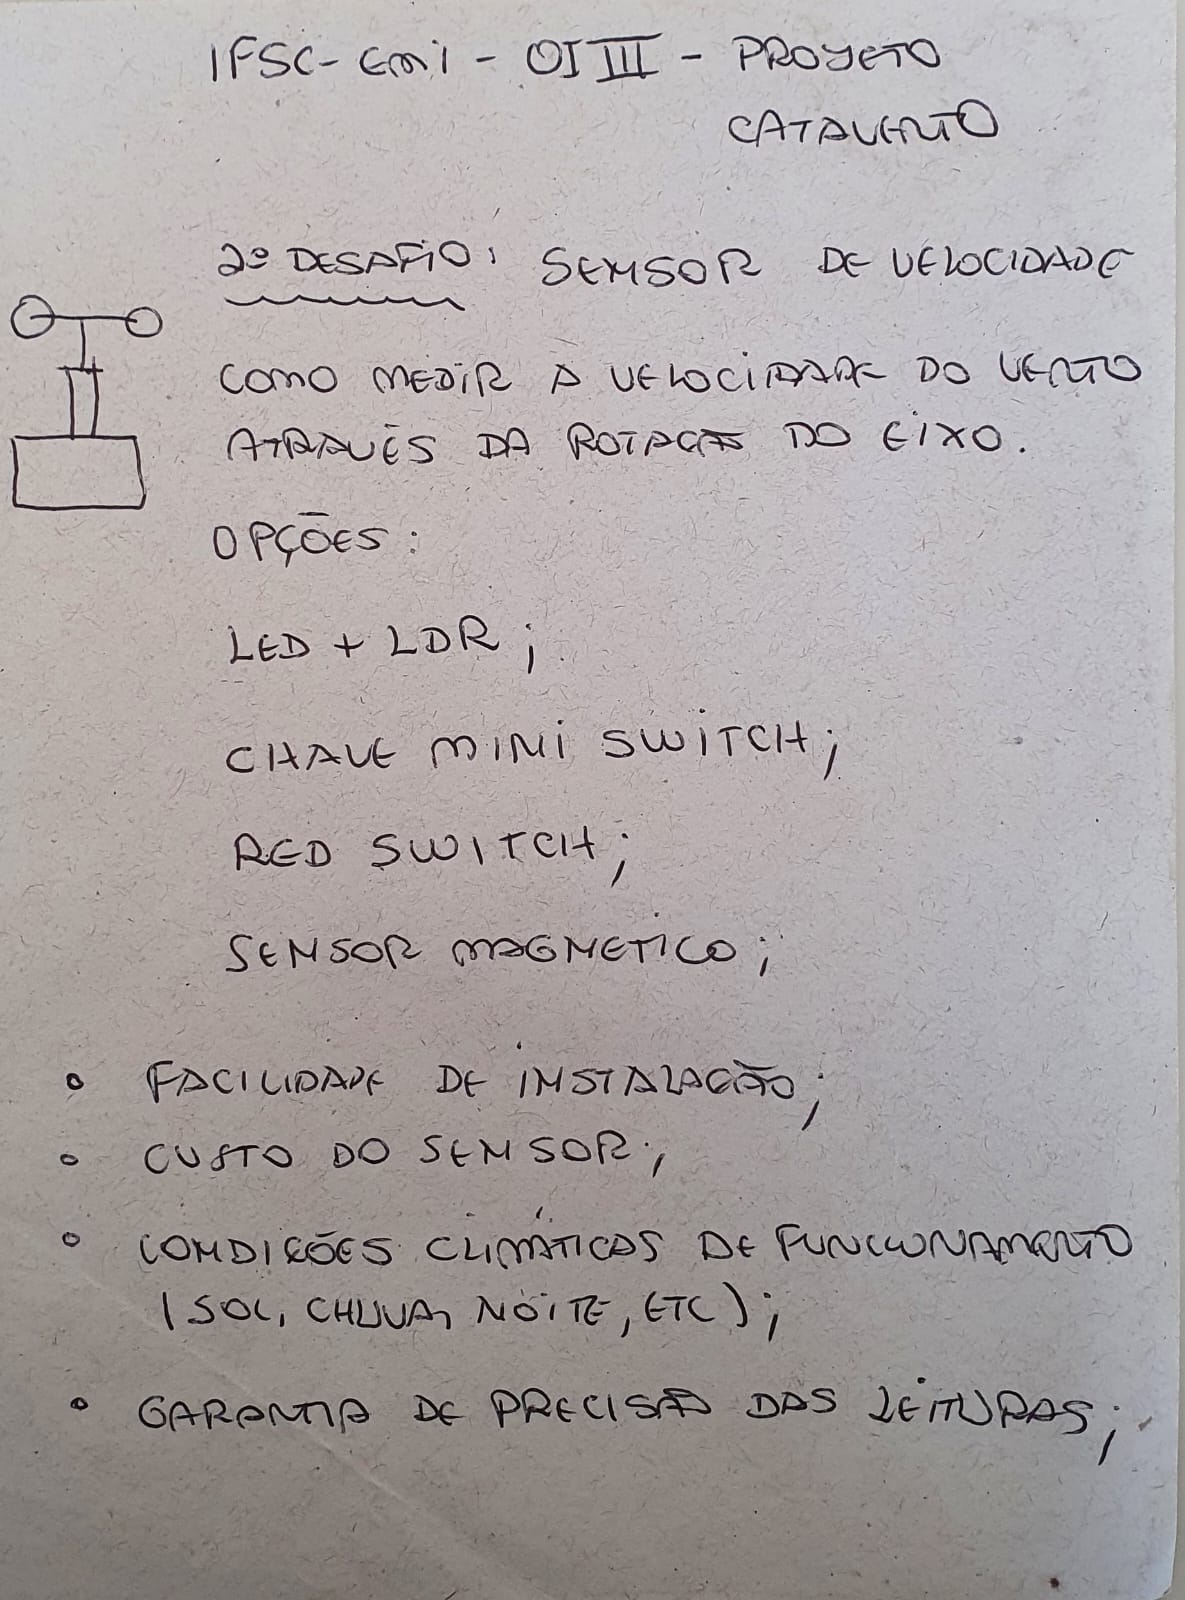 IFSC - EMI - OI III - PROJETO
CATAVENTO
2º DESAFIO: SENSOR DE VELOCIDADE
COMO MEDIR A VELOCIDADE DO VENTO
ATRAVÉS DA ROTAÇÃO DO EIXO.
OPÇÕES:
LED + LDR;
CHAVE MINI SWITCH;
RED SWITCH;
SENSOR MAGNETICO;
• FACILIDADE DE INSTALAÇÃO;
• CUSTO DO SENSOR;
• CONDIÇÕES CLIMÁTICAS DE FUNCIONAMENTO
(SOL, CHUVA, NOITE, ETC);
• GARANTIA DE PRECISÃO DAS LEITURAS;